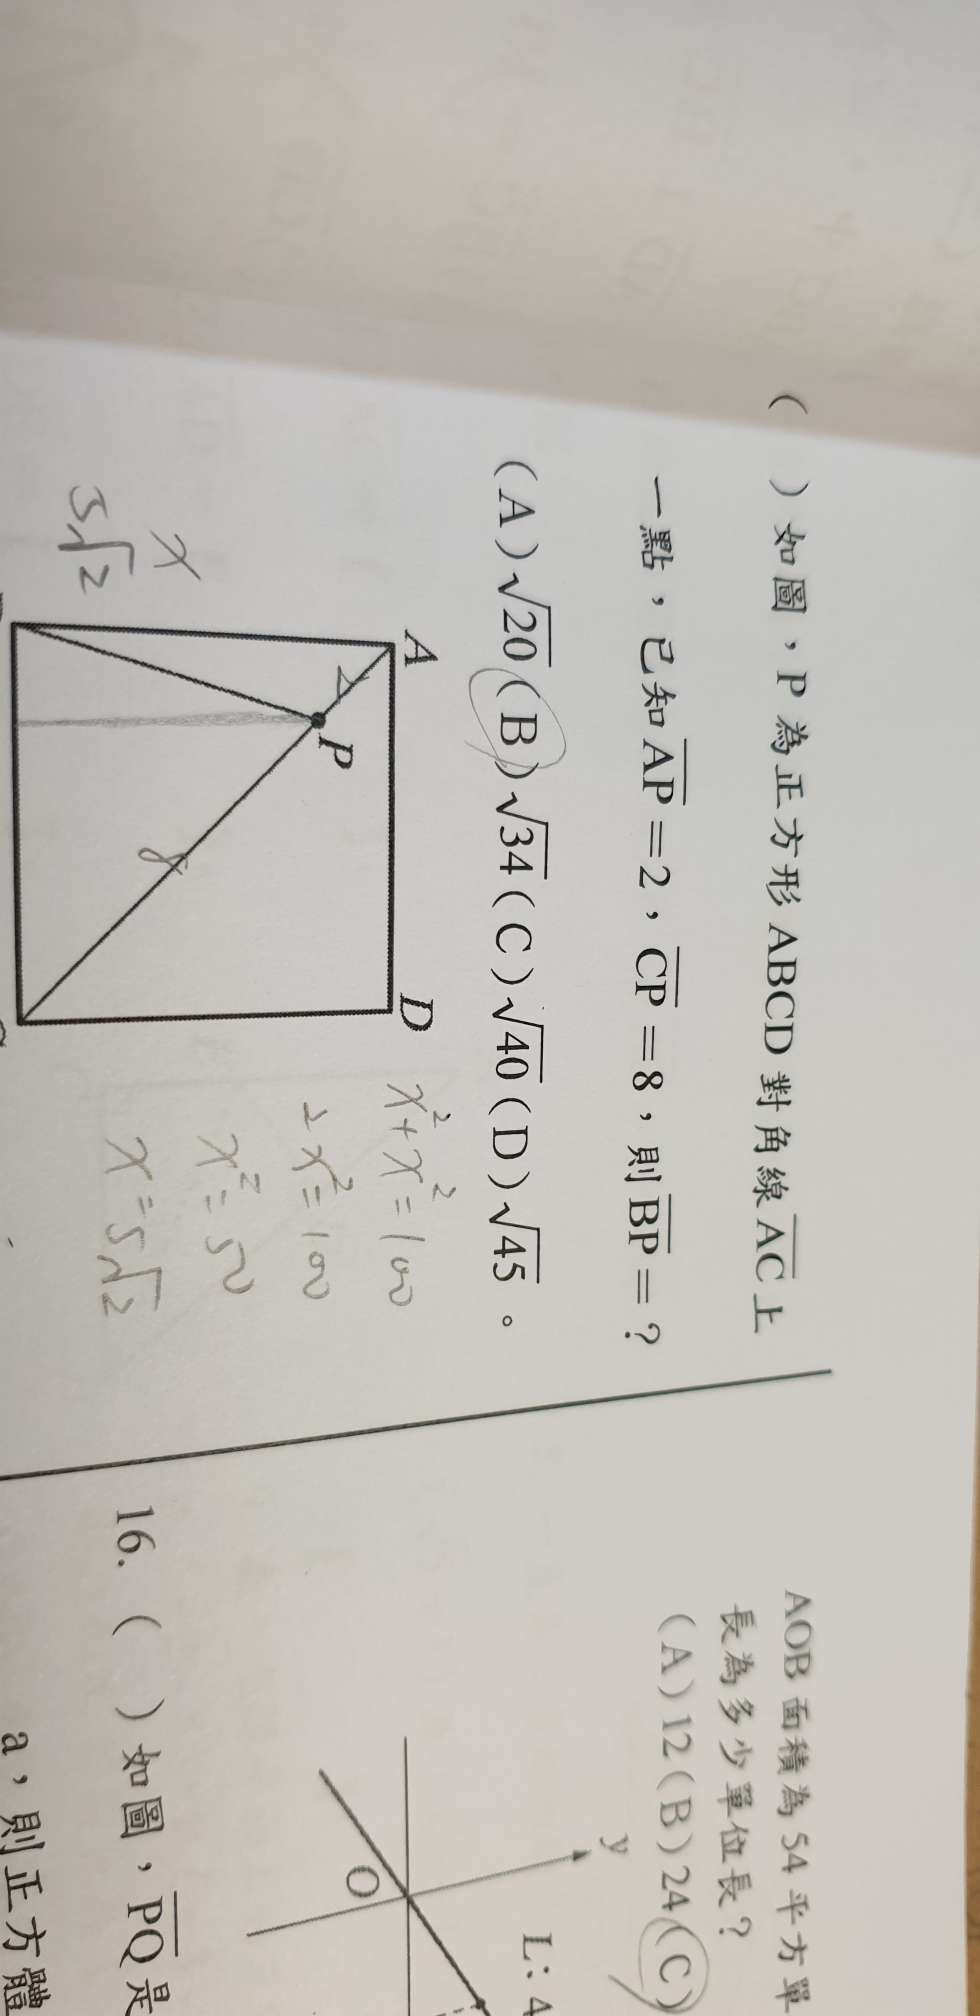 ( )如圖,P 為正方形 ABCD 對角線 AC 上
一點,已知 AP=2,CP=8,則 BP=?
(A)√20(B)√34(C)√40(D)√45。
A
D
P
2
8
x
5√2
x²+x²=100
2x²=100
x²=50
x=5√2
AOB 面積為 54 平方單
長為多少單位長?
(A)12(B)24(C)
y
L:4
O
16.( )如圖,PQ 是
a,則正方體